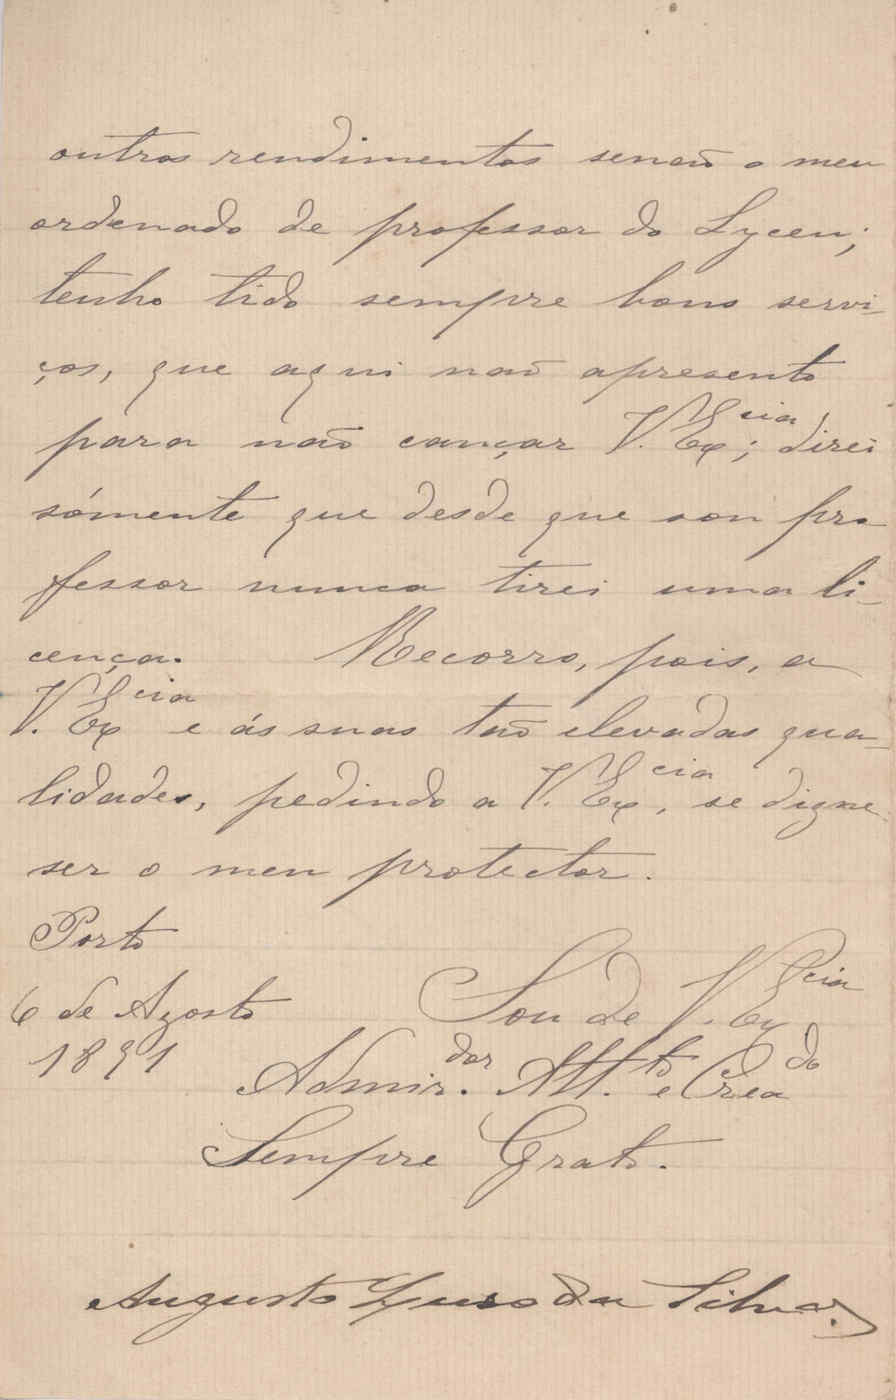 outros rendimentos senaõ o meu
ordenado de professor do Lyceu;
tenho tido sempre bons servi-
ços, que aqui naõ apresento
para naõ cançar V. Ex.cia; direi
sómente que desde que sou pro
fessor nunca tirei uma li-
cença. Recorro, pois, a
V. Excia e ás suas taõ elevadas qua-
lidades, pedindo a V. Excia, se digne
ser o meu protector.
Porto
6 de Agosto
1891
Sou de V. Excia
Admir.dor Att.to e Creado
Sempre Grato.
Augusto da Silva.